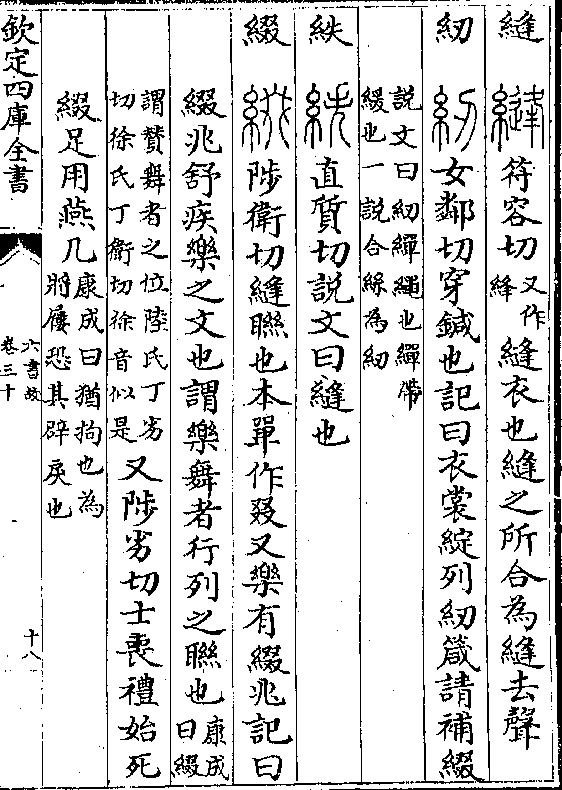 縫 縫 符容切又作綘縫衣也縫之所合為縫去聲
紉 紉 女鄰切穿鍼也記曰衣裳綻列紉箴請補綴
說文曰紉繟繩也繟帶
緩也一說合絲為紉
紩 紩 直質切說文曰縫也
綴 綴 陟衛切縫聮也本單作叕又樂有綴兆記曰
綴兆舒疾樂之文也謂樂舞者行列之聮也康成曰綴
謂贊舞者之位陸氏丁劣
切徐氏丁衛切徐音似是
又陟劣切士喪禮始死
綴足用燕几康成曰猶拘也為
將屨恐其辟戾也
欽定四庫全書
六書故
卷三十
十八